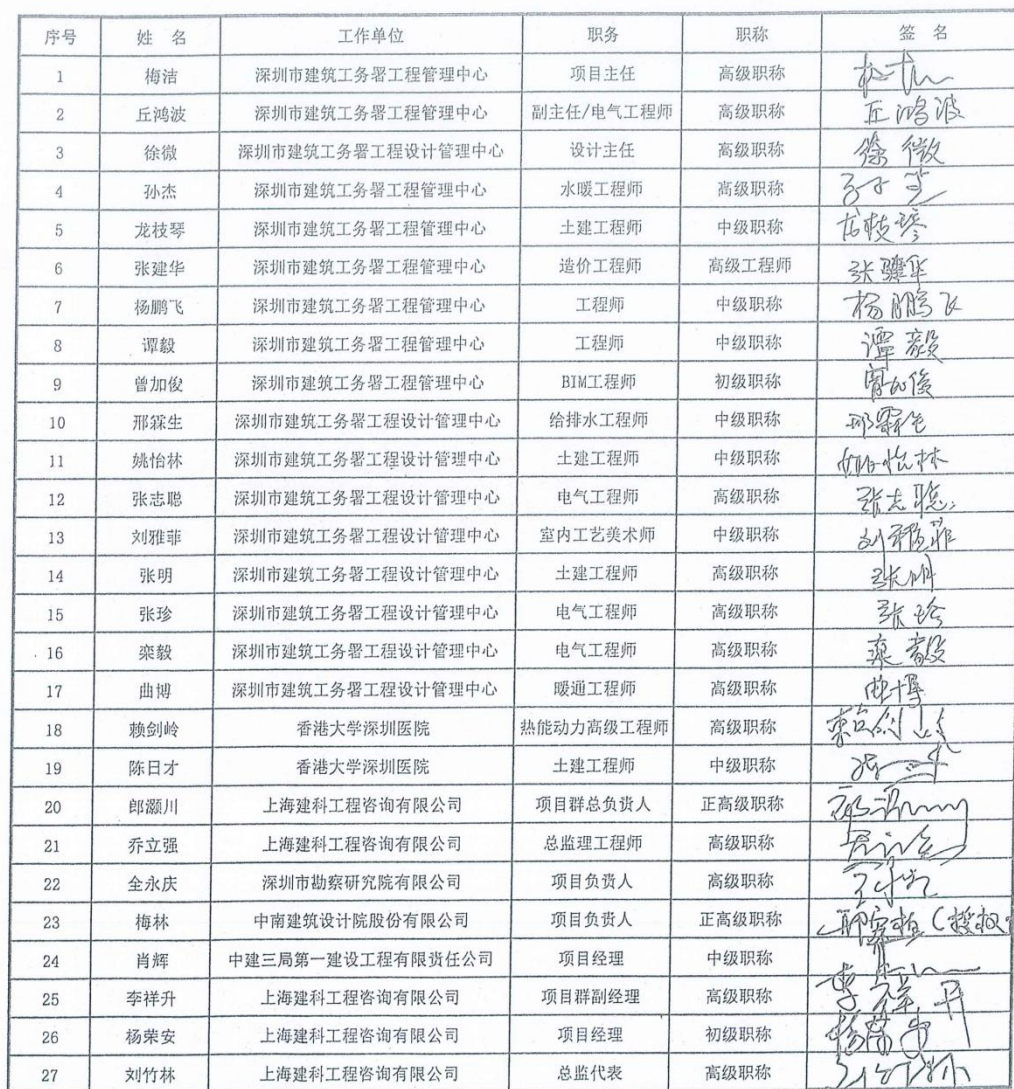 序号 姓 名 工作单位 职务 职称 签 名
1 梅洁 深圳市建筑工务署工程管理中心 项目主任 高级职称
2 丘鸿波 深圳市建筑工务署工程管理中心 副主任/电气工程师 高级职称 丘鸿波
3 徐微 深圳市建筑工务署工程设计管理中心 设计主任 高级职称 徐微
4 孙杰 深圳市建筑工务署工程管理中心 水暖工程师 高级职称
5 龙枝琴 深圳市建筑工务署工程管理中心 土建工程师 中级职称 龙枝琴
6 张建华 深圳市建筑工务署工程管理中心 造价工程师 高级工程师
7 杨鹏飞 深圳市建筑工务署工程管理中心 工程师 中级职称 杨鹏飞
8 谭毅 深圳市建筑工务署工程管理中心 工程师 中级职称 谭毅
9 曾加俊 深圳市建筑工务署工程管理中心 BIM工程师 初级职称 曾加俊
10 邢霖生 深圳市建筑工务署工程设计管理中心 给排水工程师 中级职称 邢霖生
11 姚怡林 深圳市建筑工务署工程设计管理中心 土建工程师 中级职称 姚怡林
12 张志聪 深圳市建筑工务署工程设计管理中心 电气工程师 高级职称 张志聪
13 刘雅菲 深圳市建筑工务署工程设计管理中心 室内工艺美术师 中级职称 刘雅菲
14 张明 深圳市建筑工务署工程设计管理中心 土建工程师 高级职称 张明
15 张珍 深圳市建筑工务署工程设计管理中心 电气工程师 高级职称 张珍
16 栾毅 深圳市建筑工务署工程设计管理中心 电气工程师 高级职称 栾毅
17 曲博 深圳市建筑工务署工程设计管理中心 暖通工程师 高级职称 曲博
18 赖剑岭 香港大学深圳医院 热能动力高级工程师 高级职称 赖剑岭
19 陈日才 香港大学深圳医院 土建工程师 中级职称
20 郎灏川 上海建科工程咨询有限公司 项目群总负责人 正高级职称
21 乔立强 上海建科工程咨询有限公司 总监理工程师 高级职称
22 全永庆 深圳市勘察研究院有限公司 项目负责人 高级职称
23 梅林 中南建筑设计院股份有限公司 项目负责人 正高级职称 (授权
24 肖辉 中建三局第一建设工程有限责任公司 项目经理 中级职称
25 李祥升 上海建科工程咨询有限公司 项目群副经理 高级职称
26 杨荣安 上海建科工程咨询有限公司 项目经理 初级职称 杨荣安
27 刘竹林 上海建科工程咨询有限公司 总监代表 高级职称